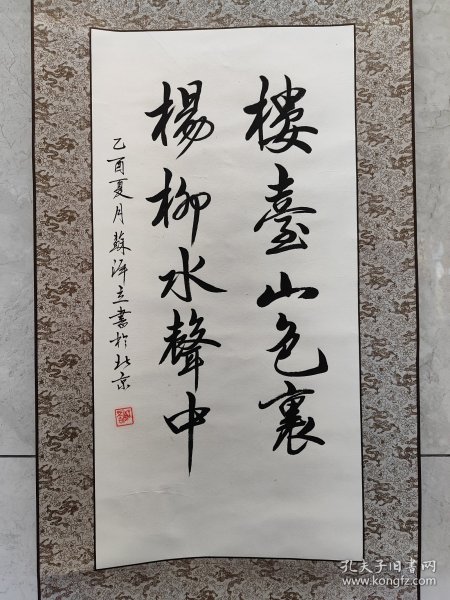 樓臺山色裏
楊柳水聲中
乙酉夏月蘇澤立書於北京
孔夫子旧书网
www.kongfz.com